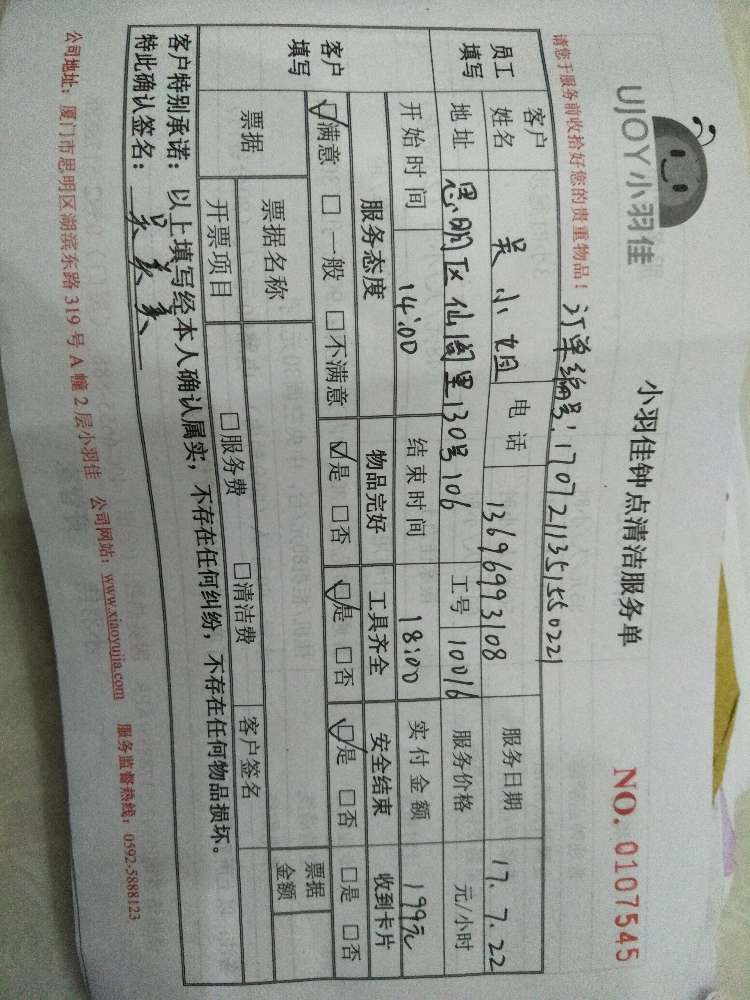 UJOY小羽佳
小羽佳钟点清洁服务单
NO. 0107545
请您于服务前收拾好您的贵重物品！
订单编号：1707211351550221
员工填写
客户姓名 吴小姐 电话 13696993108 服务日期 17.7.22
地址 思明区仙阁里130号106 工号 10016 服务价格 元/小时
开始时间 14:00 结束时间 18:00 实付金额 199元
客户填写
服务态度 物品完好 工具齐全 安全结束 收到卡片
☑满意 □一般 □不满意 ☑是 □否 ☑是 □否 ☑是 □否 □是 □否
票据 票据名称 票据金额
开票项目 □服务费 □清洁费 客户签名
客户特别承诺：以上填写经本人确认属实，不存在任何纠纷，不存在任何物品损坏。
特此确认签名：吴美美
公司地址：厦门市思明区湖滨东路319号A幢2层小羽佳 公司网站：www.xiaoyujia.com 服务监督热线：0592-5888123